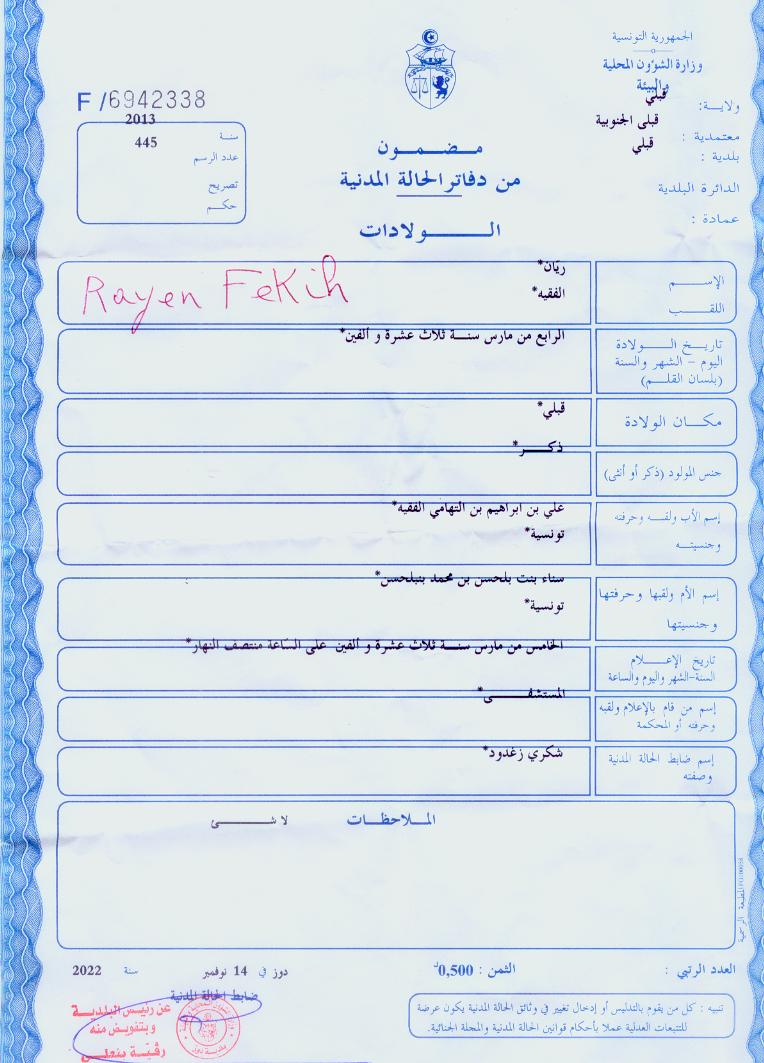 الجمهورية التونسية
وزارة الشؤون المحلية
والبيئة
ولايـــة: قبلي
معتمدية : قبلي الجنوبية
بلدية : قبلي
الدائرة البلدية
عمادة :
F /6942338
سنة 2013
عدد الرسم 445
تصريح
حكـــم
مـــضـــمـــون
من دفاتر الحالة المدنية
الـــــولادات
الإســـــم ريّان*
اللقـــب الفقيه*
Rayen Fekih
تاريــخ الـــــولادة
اليوم – الشهر والسنة
(بلسان القلـــم)
الرابع من مارس سنـــة ثلاث عشرة و ألفين*
مكـــان الولادة
قبلي*
جنس المولود (ذكر أو أنثى)
ذكـــــر*
إسم الأب ولقبـــه وحرفته
وجنسيتـــه
علي بن ابراهيم بن التهامي الفقيه*
تونسية*
إسم الأم ولقبها وحرفتـــها
وجنسيتها
سناء بنت بلحسن بن محمد بنبلحسن*
تونسية*
تاريخ الإعـــــلام
السنة-الشهر واليوم والساعة
الخامس من مارس سنـــة ثلاث عشرة و ألفين على السّاعة منتصف النهار*
إسم من قام بالإعلام ولقبه
وحرفته أو المحكمة
المستشفـــــى*
إسم ضابط الحالة المدنية
وصفته
شكري زغدود*
المـــلاحظـــات
لا شـــــئ
المطبعة الرسمية
العدد الرتبي :
الثمن : 0,500د
دوز في 14 نوفمبر سنة 2022
ضابط الحالة المدنية
عن رئيس البلدية
وبتفويض منه
تنبيه : كل من يقوم بالتدليس أو إدخال تغيير في وثائق الحالة المدنية يكون عرضة
للتتبعات العدلية عملا بأحكام قوانين الحالة المدنية والمجلة الجنائية.